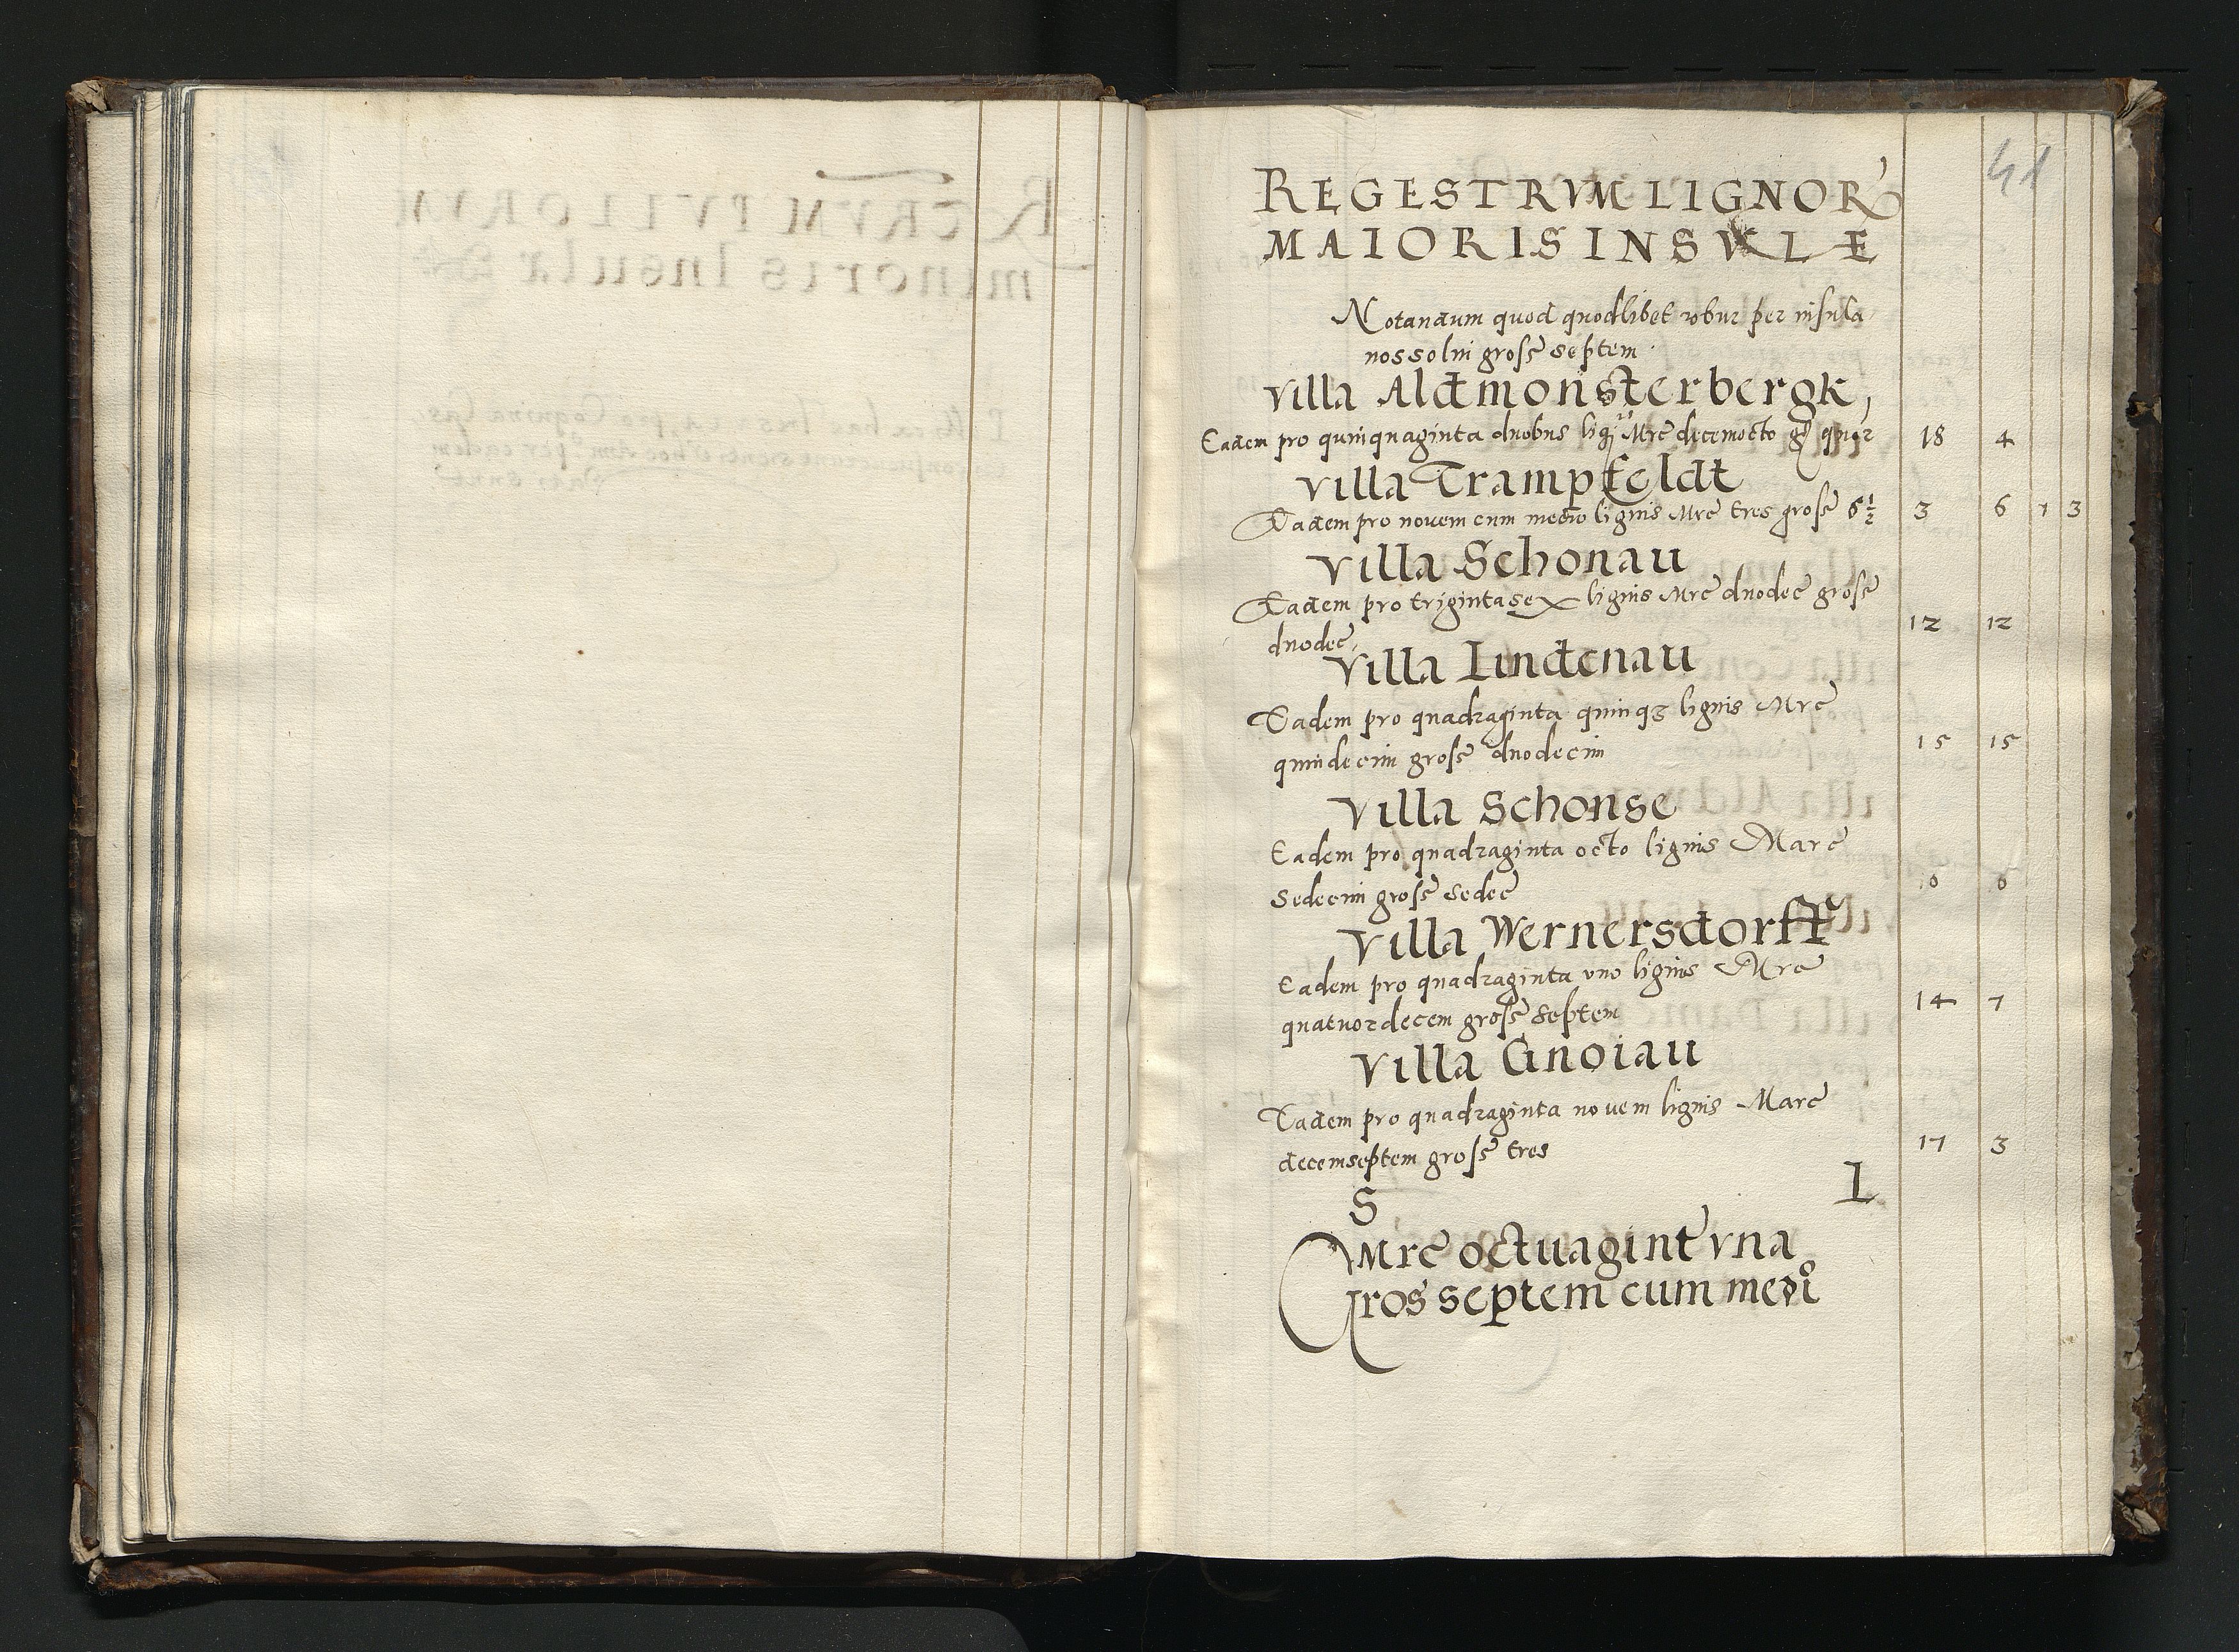 41
REGESTRVM LIGNOR
MAIORIS INSVLÆ
Notandum quod quodlibet robur per insula
nossolui gross septem
villa Aldmonsterbergk,
Eadem pro quinquaginta duobus lig Mrc decemocto gr quor 18 4
villa Trampfeldt
Eadem pro nouem cum medio lignis Mrc tres gross 6½ 3 6 1 3
villa Schonau
Eadem pro trigintasex lignis Mrc duodec gross
duodec, 12 12
villa Lindenau
Eadem pro quadraginta quinq3 lignis Mrc
quindecim gross duodecim 15 15
villa Schonse
Eadem pro quadraginta octo lignis Marc
sedecim gross sedec 0 0
villa Wernersdorff
Eadem pro quadraginta vno lignis Mrc
quatuordecem gross septem 14 7
villa Gnoiau
Eadem pro quadraginta nouem lignis Marc
decemseptem gross tres 17 3
S L
Mrc octuagint vna
Gros septem cum medi